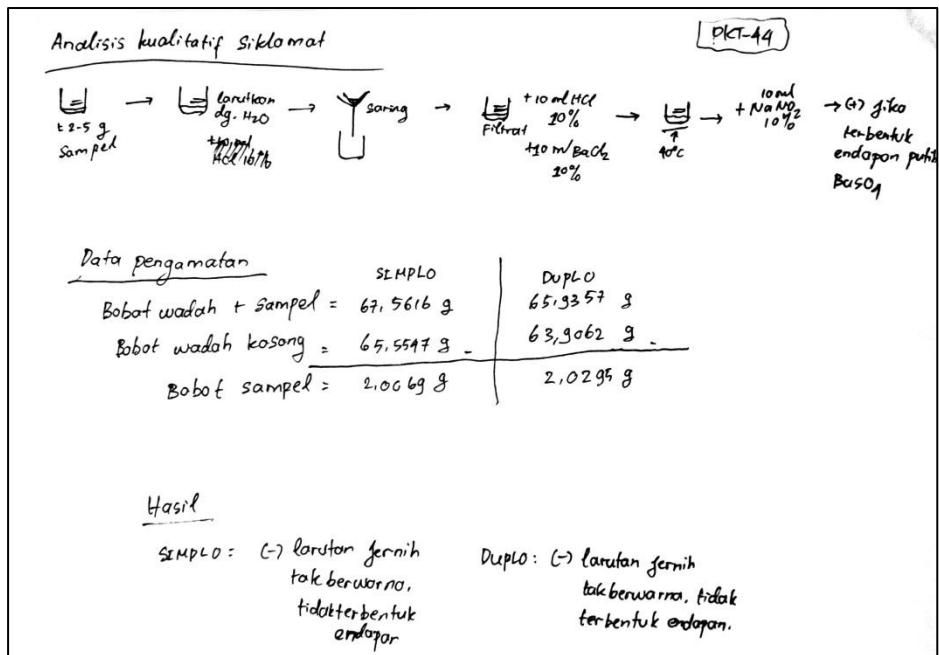 Analisis kualitatif Siklamat
PKT-44
± 2-5 g
Sampel
larutkan
dg. H2O
saring
Filtrat
+10 ml HCl
10%
+10 ml BaCl2
10%
40°C
10 ml
+ NaNO2
10%
(+) jika
terbentuk
endapan putih
BaSO4
Data pengamatan
SIMPLO
DUPLO
Bobot wadah + sampel = 67,5616 g 65,9357 g
Bobot wadah kosong = 65,5547 g - 63,9062 g -
Bobot sampel = 2,0069 g 2,0295 g
Hasil
SIMPLO : (-) larutan jernih
tak berwarna,
tidak terbentuk
endapan
DUPLO : (-) larutan jernih
tak berwarna, tidak
terbentuk endapan.